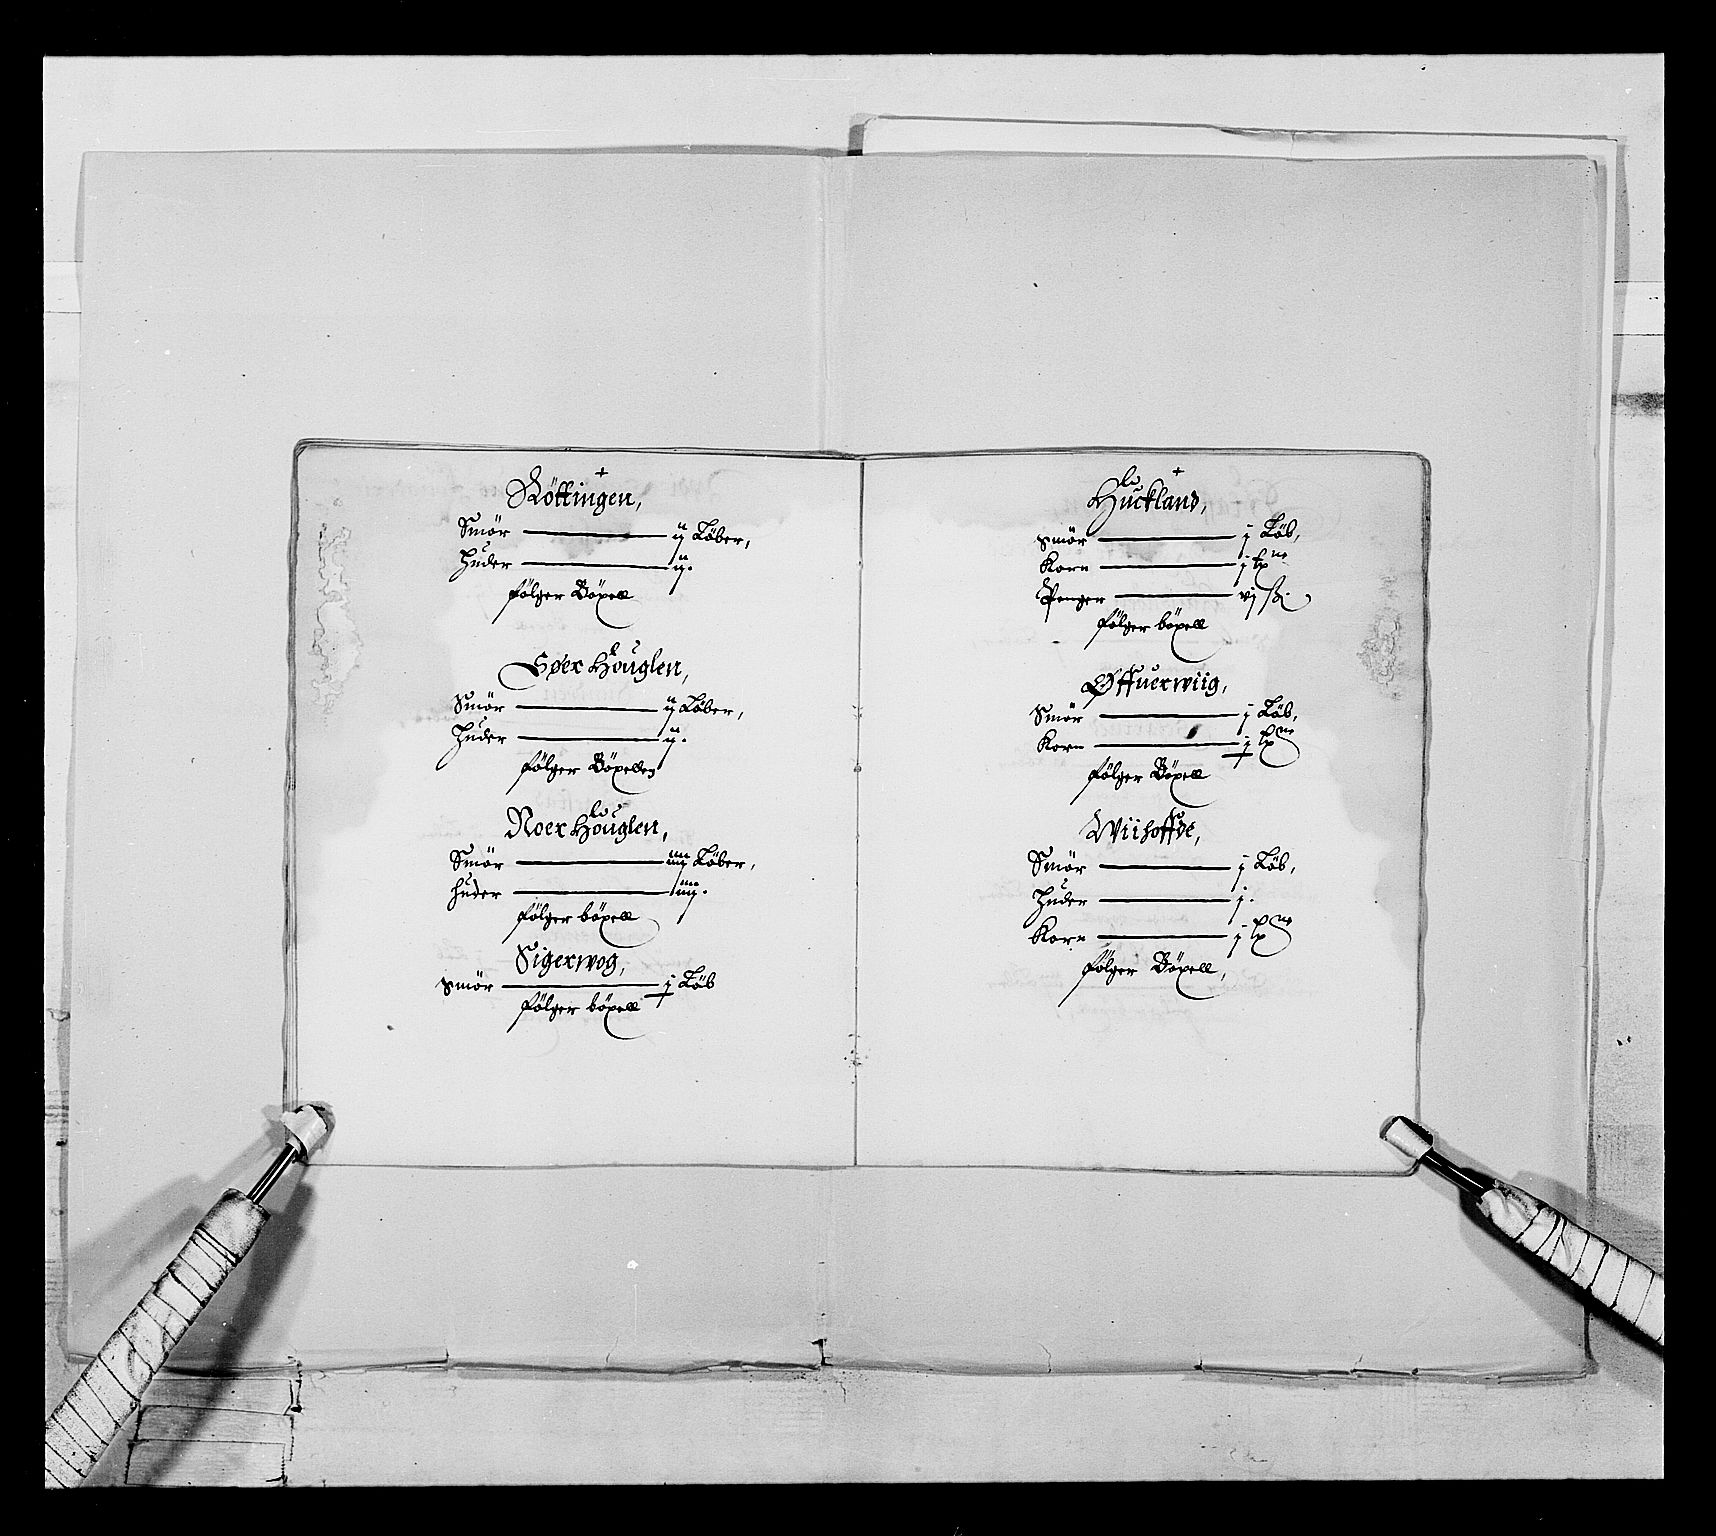 Röttingen,
Smör ij Löber,
Huder ij.
følger Böxell
Søer Houglen,
Smör ij Löber,
Huder ij.
følger Böxellen
Noer Houglen,
Smör iiij Löber,
huder iiij.
følger böxell
Sigerwog,
Smör j Löb
følger böxell
Huckland,
Smör j Löb,
Korn j tne
Penger vj ß
følger böxell
Øffuerwiig,
Smör j Löb,
Korn j tne
følger Böxell
Wiihoffde,
Smör j Löb,
Huder j.
Korn j tne
følger Böxell,